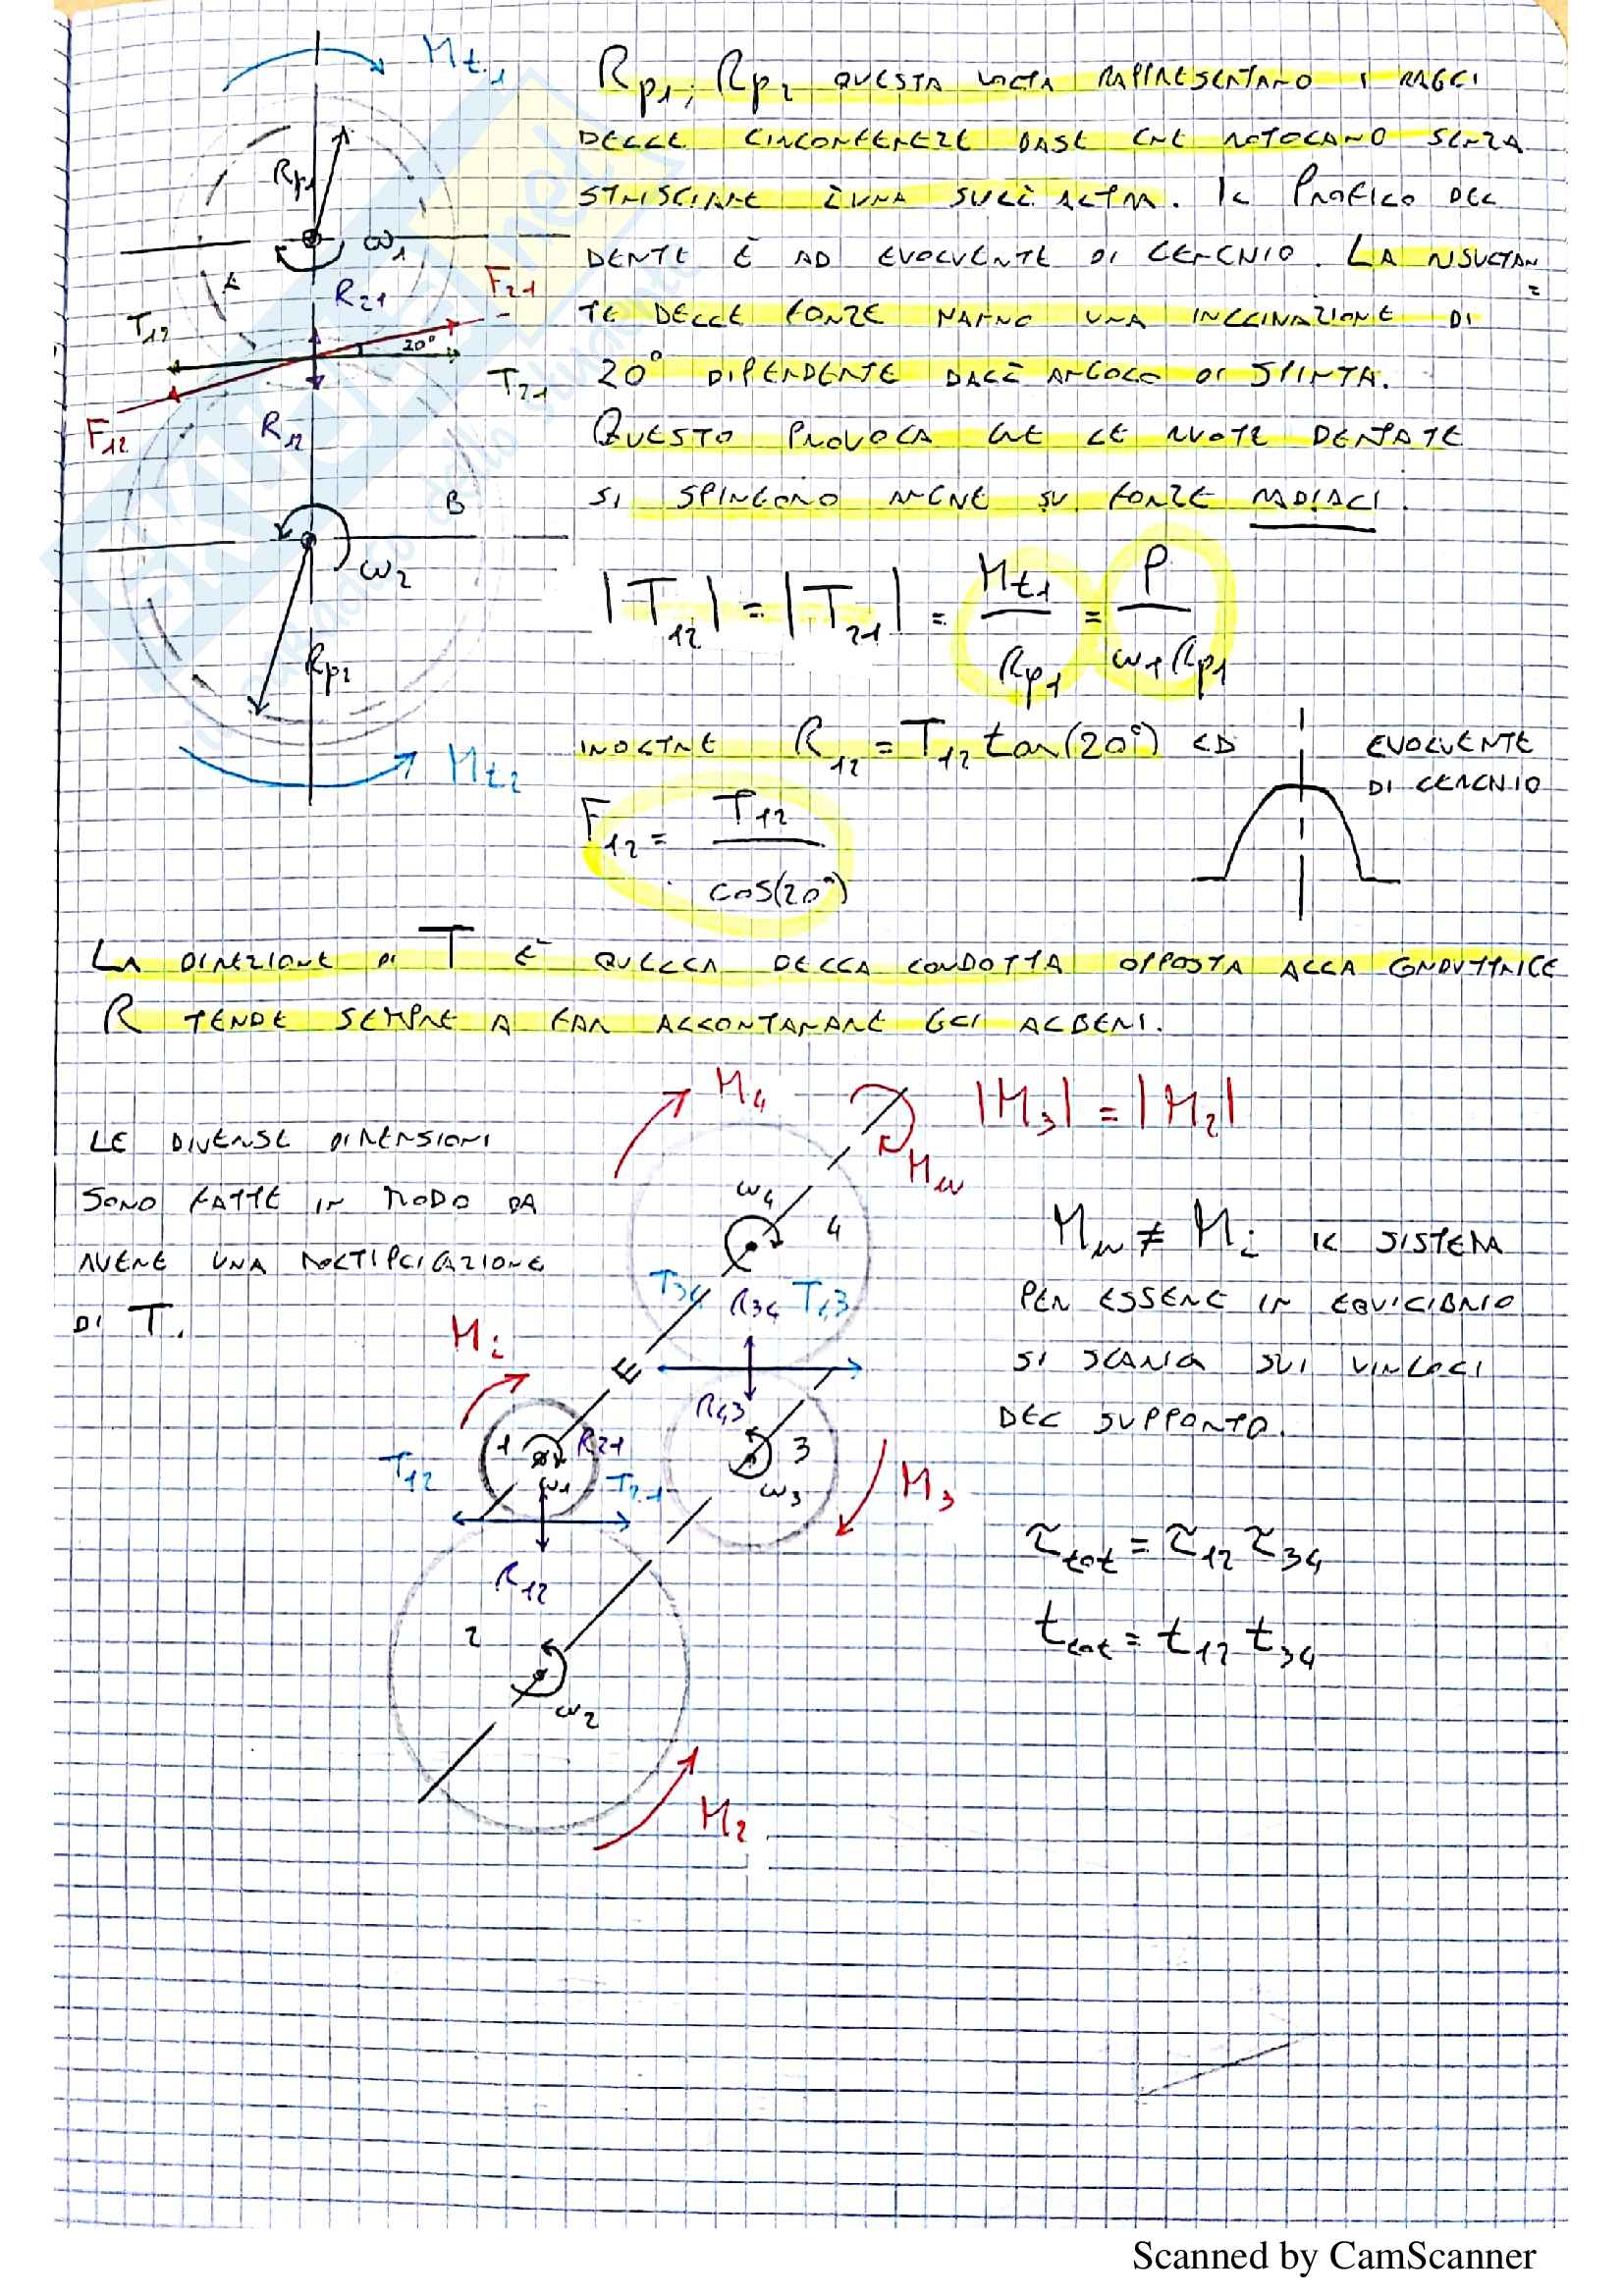 Mt1
Rp1, Rp2 QUESTA VOLTA RAPPRESENTANO I RAGGI
DELLE CIRCONFERENZE BASE CHE ROTOLANO SENZA
STRISCIARE L'UNA SULL'ALTRA. IL PROFILO DEL
DENTE È AD EVOLVENTE DI CERCHIO. LA RISULTAN=
TE DELLE FORZE HANNO UNA INCLINAZIONE DI
20° DIPENDENTE DALL'ANGOLO DI SPINTA.
QUESTO PROVOCA CHE LE RUOTE DENTATE
SI SPINGONO ANCHE SU FORZE RADIALI.
Rp1
ω1
A
R21
F21
T12
20°
T21
F12
R12
B
ω2
Rp2
Mt2
|T12| = |T21| = Mt1/Rp1 = P/ω1Rp1
INOLTRE R12 = T12 tan(20°) ED
F12 = T12/cos(20°)
EVOLVENTE
DI CERCHIO
LA DIREZIONE DI T È QUELLA DELLA CONDOTTA OPPOSTA ALLA CONDUTTRICE
R TENDE SEMPRE A FAR ALLONTANARE GLI ALBERI.
LE DIVERSE DIMENSIONI
SONO FATTE IN MODO DA
AVERE UNA MOLTIPLICAZIONE
DI T.
M4
Mu
ω4
4
T34
R34
T43
Mi
R43
1
R21
ω1
T12
T21
3
ω3
M3
R12
2
ω2
M2
|M3| = |M2|
Mu ≠ Mi IL SISTEMA
PER ESSERE IN EQUILIBRIO
SI SCARICA SUI VINCOLI
DEL SUPPORTO.
τtot = τ12 τ34
ttot = t12 t34
Scanned by CamScanner